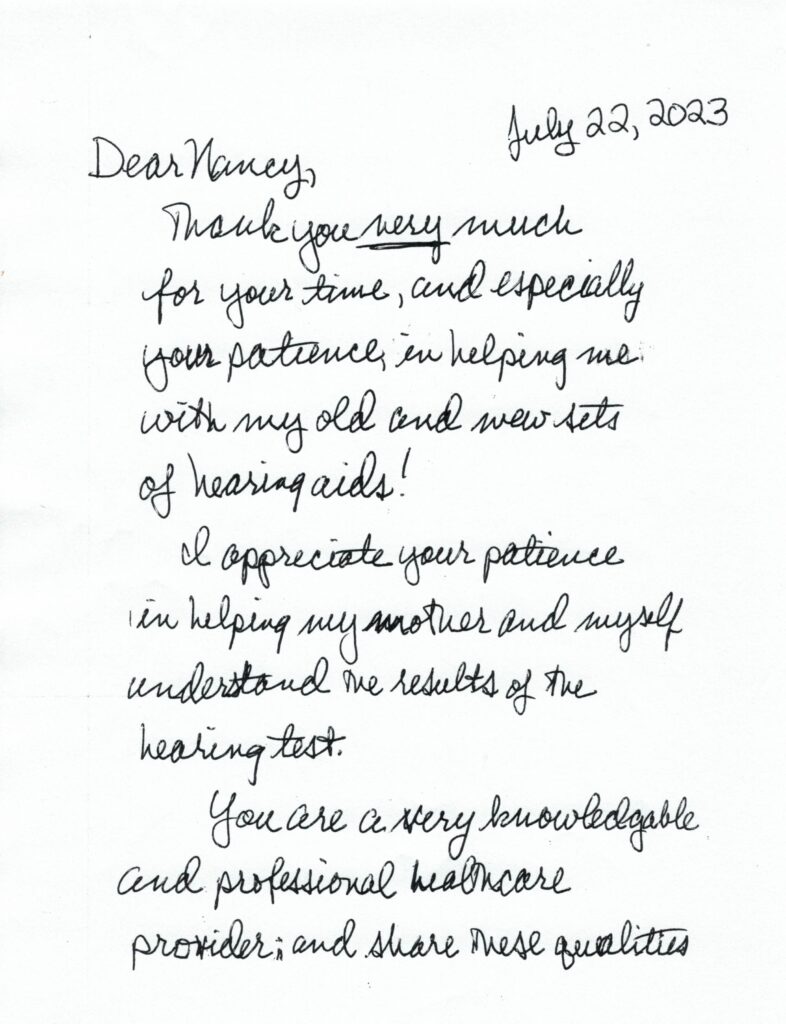 July 22, 2023
Dear Nancy,
Thank you very much
for your time, and especially
your patience, in helping me
with my old and new sets
of hearing aids!
I appreciate your patience
in helping my mother and myself
understand the results of the
hearing test.
You are a very knowledgable
and professional healthcare
provider; and share these qualities